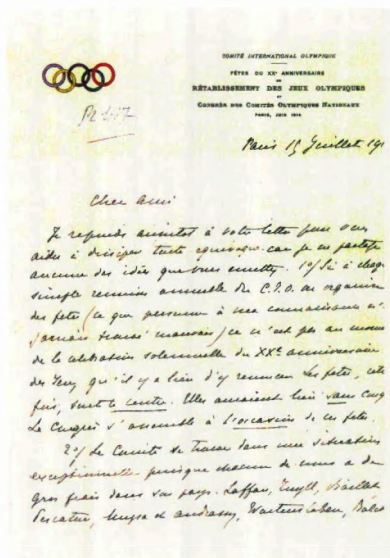 COMITÉ INTERNATIONAL OLYMPIQUE
FÊTES DU XXe ANNIVERSAIRE
DU
RÉTABLISSEMENT DES JEUX OLYMPIQUES
ET
CONGRÈS DES COMITÉS OLYMPIQUES NATIONAUX
PARIS, JUIN 1914
Paris 15 Juillet 191
Cher ami
Je réponds aussitôt à votre lettre pour vous
aider à dissiper toute équivoque car je ne partage
aucune des idées que vous émettez. 1o/ Si à chaque
simple réunion annuelle du C.I.O. on organise
des fêtes (ce que personne à ma connaissance n'
jamais trouvé mauvais) ce n'est pas au moment
de la célébration solennelle du XXe anniversaire
des Jeux qu'il y a lieu d'y renoncer. Les fêtes, cette
fois, sont le centre. Elles auraient lieu sans Congrès
Le Congrès s'assemble à l'occasion de ces fêtes.
2o/ Le Comité se trouve dans une situation
exceptionnelle puisque chacun de nous a de
gros frais dans son pays. Laffan, Tuyll, Baillet
Pescatore, Muzsa et Andrassy,